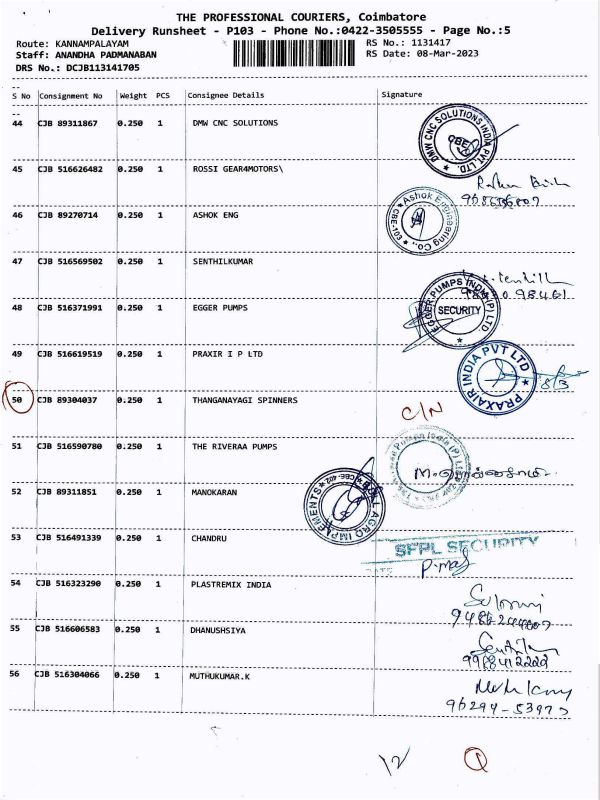 THE PROFESSIONAL COURIERS, Coimbatore
Delivery Runsheet - P103 - Phone No.:0422-3505555 - Page No.:5
Route: KANNAMPALAYAM RS No.: 1131417
Staff: ANANDHA PADMANABAN RS Date: 08-Mar-2023
DRS No.: DCJB113141705
S No Consignment No Weight PCS Consignee Details Signature
44 CJB 89311867 0.250 1 DMW CNC SOLUTIONS
DMW CNC SOLUTIONS INDIA PVT LTD.
CBE
45 CJB 516626482 0.250 1 ROSSI GEAR4MOTORS\
46 CJB 89270714 0.250 1 ASHOK ENG
Ashok Engineering Co.,
CBE-103
47 CJB 516569502 0.250 1 SENTHILKUMAR
48 CJB 516371991 0.250 1 EGGER PUMPS
EGGER PUMPS INDIA (P) LTD
SECURITY
49 CJB 516619519 0.250 1 PRAXIR I P LTD
PRAXAIR INDIA PVT LTD
8/3
50 CJB 89304037 0.250 1 THANGANAYAGI SPINNERS
C/N
51 CJB 516590780 0.250 1 THE RIVERAA PUMPS
Pumps India (P) Ltd
52 CJB 89311851 0.250 1 MANOKARAN
AGRO IMPLMENTS
CBE-402
53 CJB 516491339 0.250 1 CHANDRU
SFPL SECURITY
DATE
54 CJB 516323290 0.250 1 PLASTREMIX INDIA
55 CJB 516606583 0.250 1 DHANUSHSIYA
9988412229
56 CJB 516304066 0.250 1 MUTHUKUMAR.K
12 1